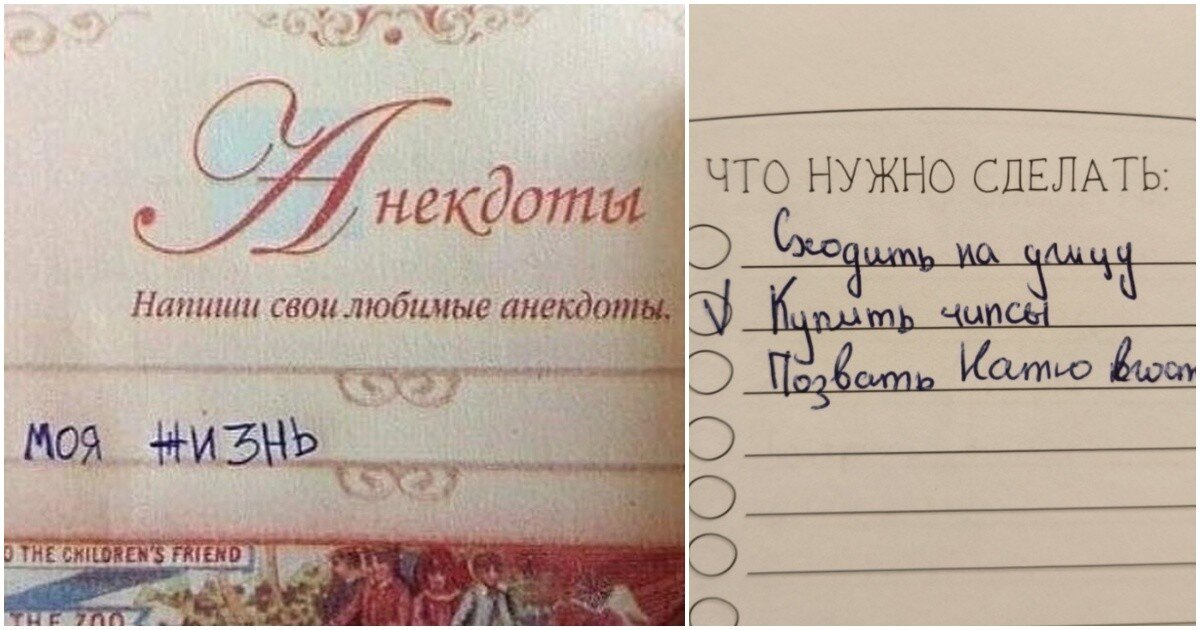 Анекдоты
Напиши свои любимые анекдоты.
моя жизнь
O THE CHILDREN'S FRIEND
THE ZOO
ЧТО НУЖНО СДЕЛАТЬ:
Сходить на улицу
Купить чипсы
Позвать Катю вгост